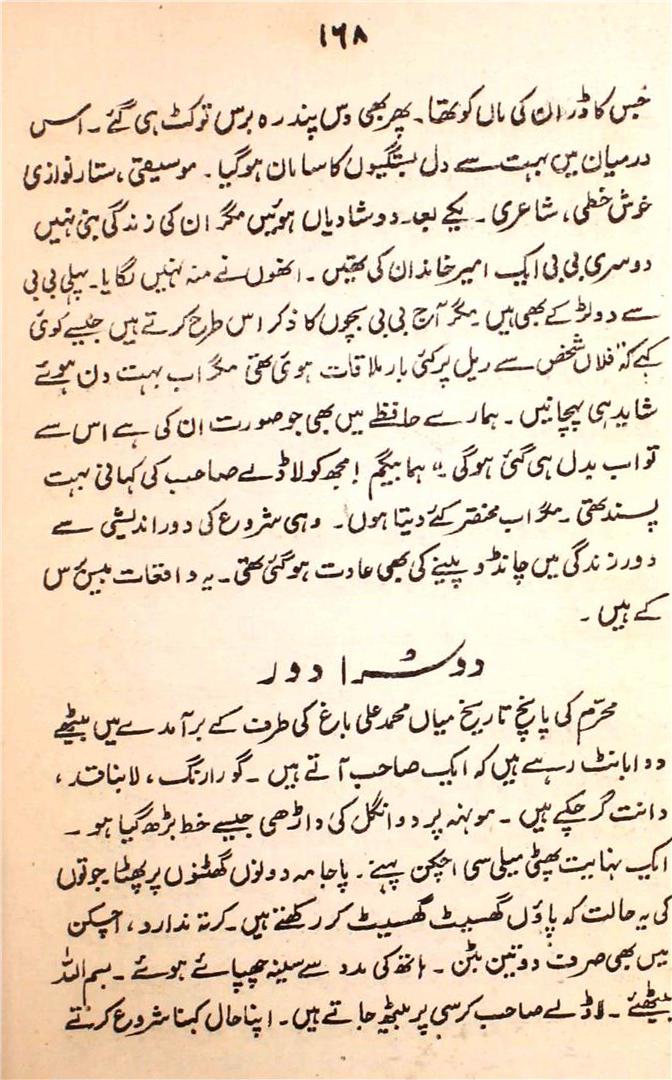 ۱۶۸
جس کا ڈر ان کی ماں کو تھا۔ پھر بھی دس پندرہ برس تو کٹ ہی گئے۔ اس
درمیان میں بہت سے دل بستگیوں کا سامان ہو گیا۔ موسیقی، ستار نوازی
خوش خطی، شاعری۔ یکے بعد دو شادیاں ہوئیں مگر ان کی زندگی بنی نہیں
دوسری بی بی ایک امیر خاندان کی تھیں۔ انھوں نے منہ نہیں لگایا۔ پہلی بی بی
سے دو لڑکے بھی ہیں مگر آج بی بی بچوں کا ذکر اس طرح کرتے ہیں جیسے کوئی
کہے کہ "فلاں شخص سے ریل پر کئی بار ملاقات ہوئی تھی مگر اب بہت دن ہوئے
شاید ہی پہچانیں۔ ہمارے حافظے میں بھی جو صورت ان کی ہے اس سے
تو اب بدل ہی گئی ہوگی۔" ہما بیگم! مجھ کو لاڈلے صاحب کی کہانی بہت
پسند تھی۔ مگر اب مختصر کئے دیتا ہوں۔ وہی شروع کی دور اندیشی سے
دور زندگی میں چانڈو پینے کی بھی عادت ہوگئی تھی۔ یہ واقعات بیس برس
کے ہیں۔
دوسرا دور
محرّم کی پانچ تاریخ میاں محمد علی باغ کی طرف کے برآمدے میں بیٹھے
دوا بانٹ رہے ہیں کہ ایک صاحب آتے ہیں۔ گورا رنگ، لانبا قد،
دانت گر چکے ہیں۔ مونہہ پر دو انگل کی داڑھی جیسے خط بڑھ گیا ہو۔
ایک نہایت پھٹی میلی سی اچکن پہنے۔ پاجامہ دونوں گھٹنوں پر پھٹا جوتوں
کی یہ حالت کہ پاؤں گھسیٹ گھسیٹ کر رکھتے ہیں۔ کرتہ ندارد، اچکن
میں بھی صرف دو تین بٹن۔ ہاتھ کی مدد سے سینہ چھپائے ہوئے۔ بسم اللہ
بیٹھئے۔ لاڈلے صاحب کرسی پر بیٹھ جاتے ہیں۔ اپنا حال کہنا شروع کرتے